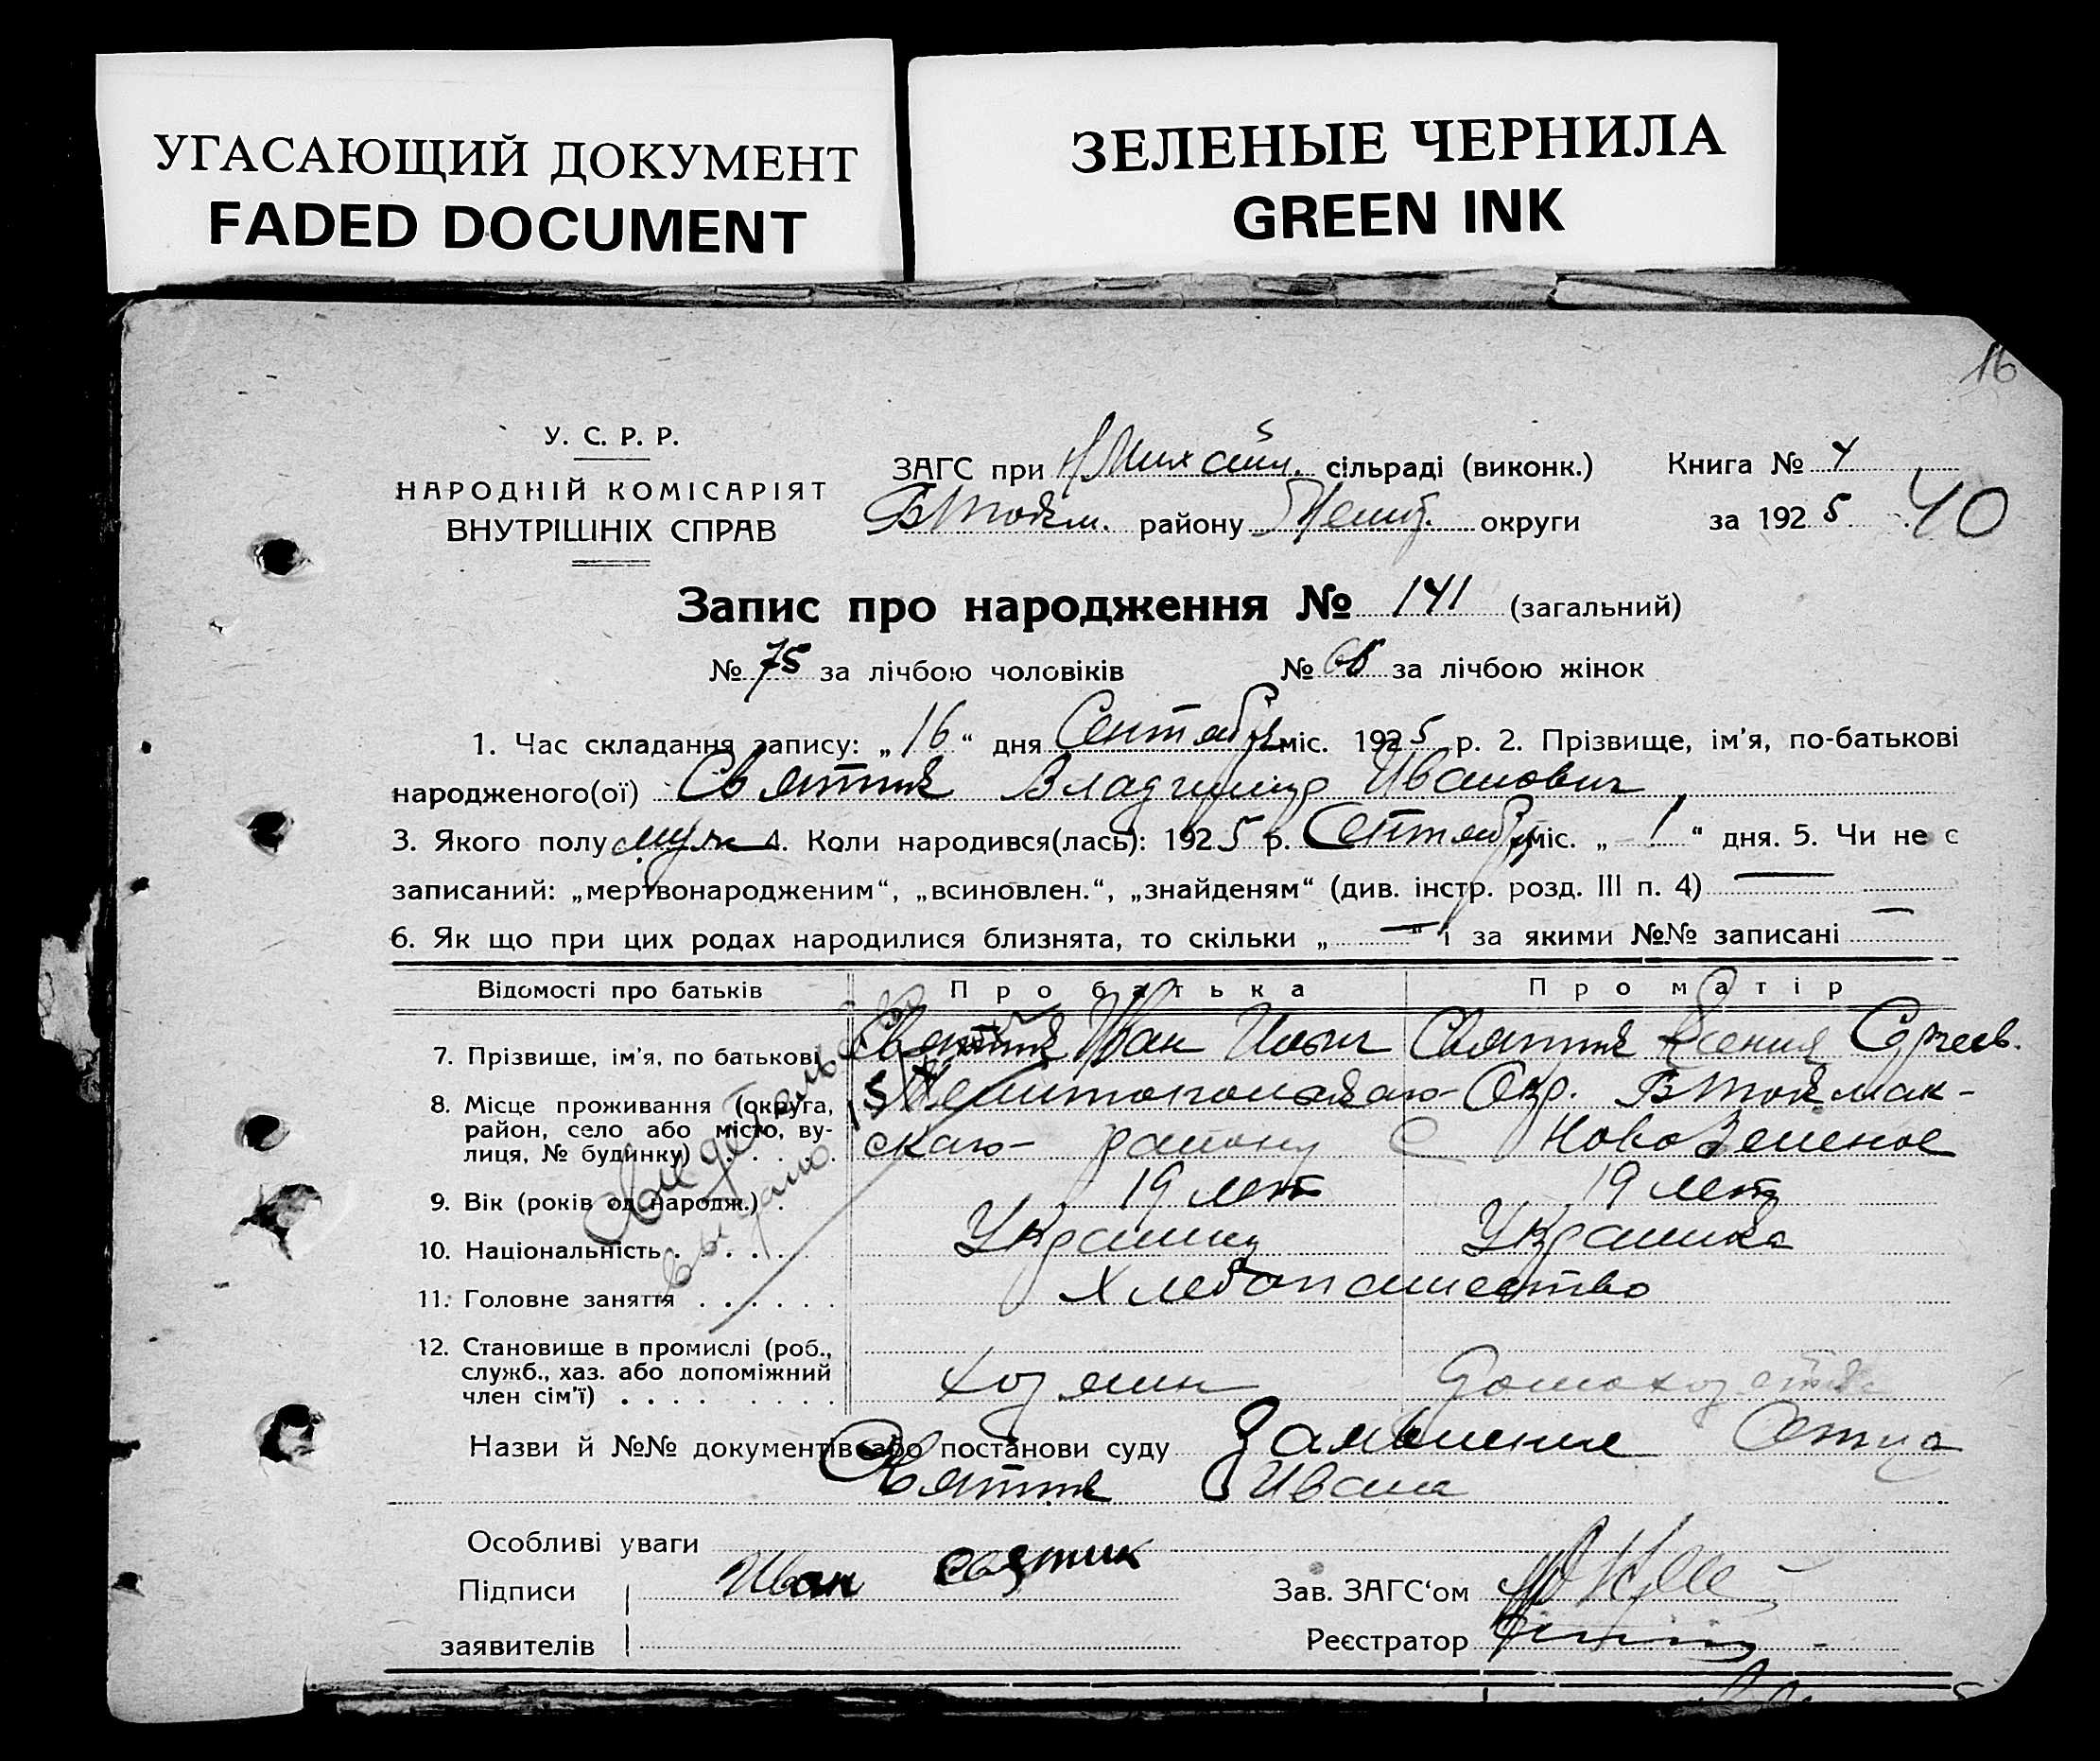 УГАСАЮЩИЙ ДОКУМЕНТ
FADED DOCUMENT
ЗЕЛЕНЫЕ ЧЕРНИЛА
GREEN INK
16
У. С. Р. Р.
НАРОДНІЙ КОМІСАРІЯТ
ВНУТРІШНІХ СПРАВ
ЗАГС при Н Михайл. сільраді (виконк.) Книга № 4
БТокм. району Мелит. округи за 1925 40
Запис про народження № 141 (загальний)
№ 75 за лічбою чоловіків № за лічбою жінок
1. Час складання запису: „16“ дня Сентября міс. 1925 р. 2. Прізвище, ім'я, по-батькові
народженого(ої) Святик Владимир Иванович
3. Якого полу муж 4. Коли народився(лась): 1925 р. Сентября міс. „1“ дня. 5. Чи не є
записаний: „мертвонародженим“, „всиновлен.“, „знайденям“ (див. інстр. розд. III п. 4) —
6. Як що при цих родах народилися близнята, то скільки „—“ і за якими №№ записані —
Відомості про батьків Про батька Про матір
7. Прізвище, ім'я, по батькові Святик Иван Ильич Святик Ксения Сергеев.
8. Місце проживання (округа, район, село або місто, вулиця, № будинку) Мелитопольскаго Окр. БТокмак-
скаго району С Ново Зеленое
9. Вік (років од народж.) . 19 лет 19 лет
10. Національність . . . . . Украинец Украинка
11. Головне заняття . . . . . . Хлебопашество
12. Становище в промислі (роб., служб., хаз. або допоміжний член сім'ї) . . . . . . . . хозяин домохоз
Свидетельство
выдано
Назви й №№ документів або постанови суду Заявление Отца
Святик Ивана
Особливі уваги
Підписи Иван Святик Зав. ЗАГС'ом
заявителів Реєстратор